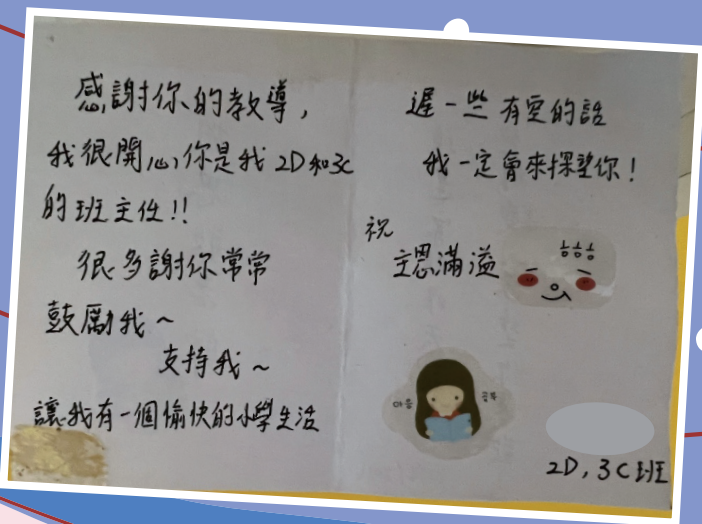 感謝你的教導，
我很開心，你是我2D和3C
的班主任!!
很多謝你常常
鼓勵我～
支持我～
讓我有一個愉快的小學生活
遲一些有空的話
我一定會來探望你！
祝
主恩滿溢
ㅎㅎㅎ
2D, 3C班